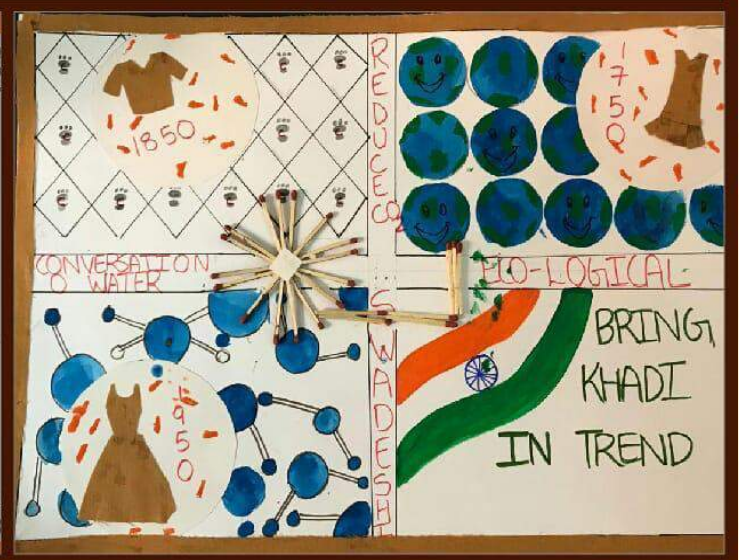 1850
REDUCE CO2
1750
CONVERSATION
O WATER
BIO-LOGICAL
SWADESHI
1950
BRING
KHADI
IN TREND